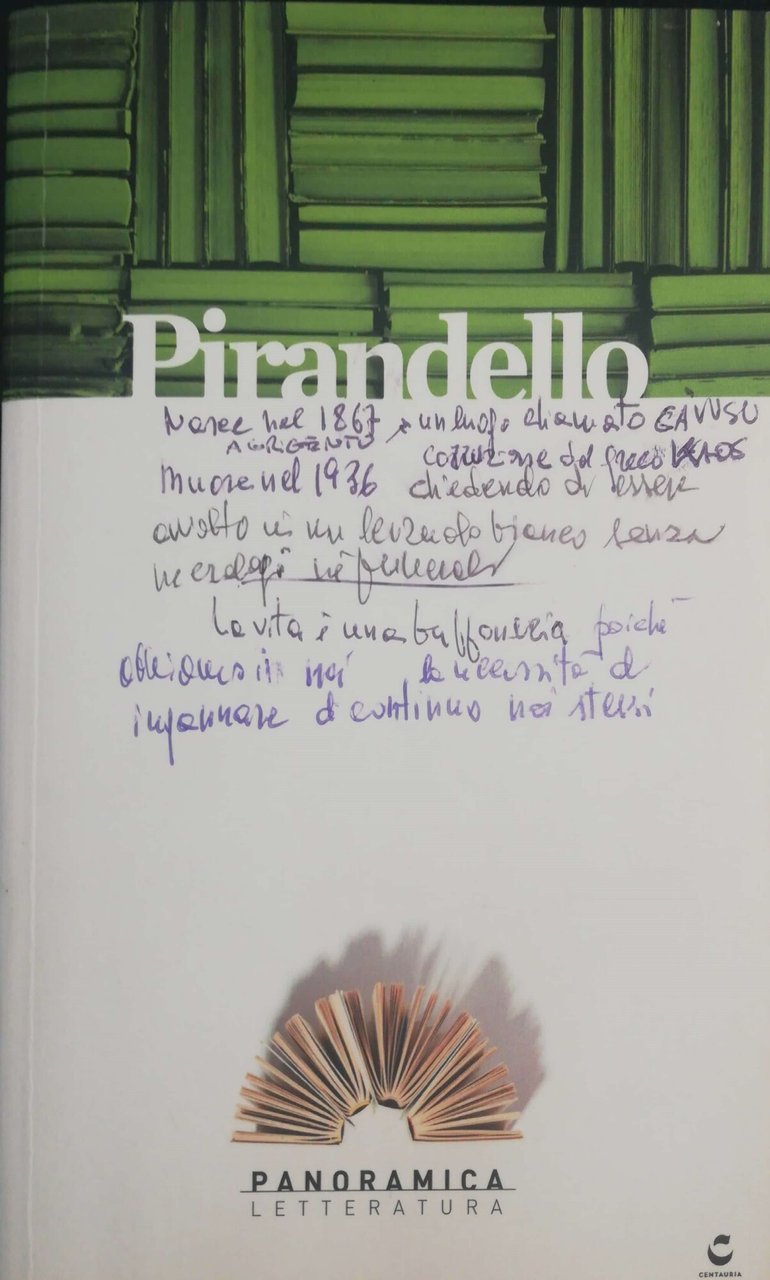 Pirandello
Nasce nel 1867 in un luogo chiamato CAVUSU
AGRIGENTO
corruzione del greco KAOS
Muore nel 1936 chiedendo di essere
avvolto in un lenzuolo bianco senza
necrologi nè funerali
La vita è una buffoneria poichè
abbiamo in noi la necessità di
ingannare di continuo noi stessi
PANORAMICA
LETTERATURA
CENTAURIA